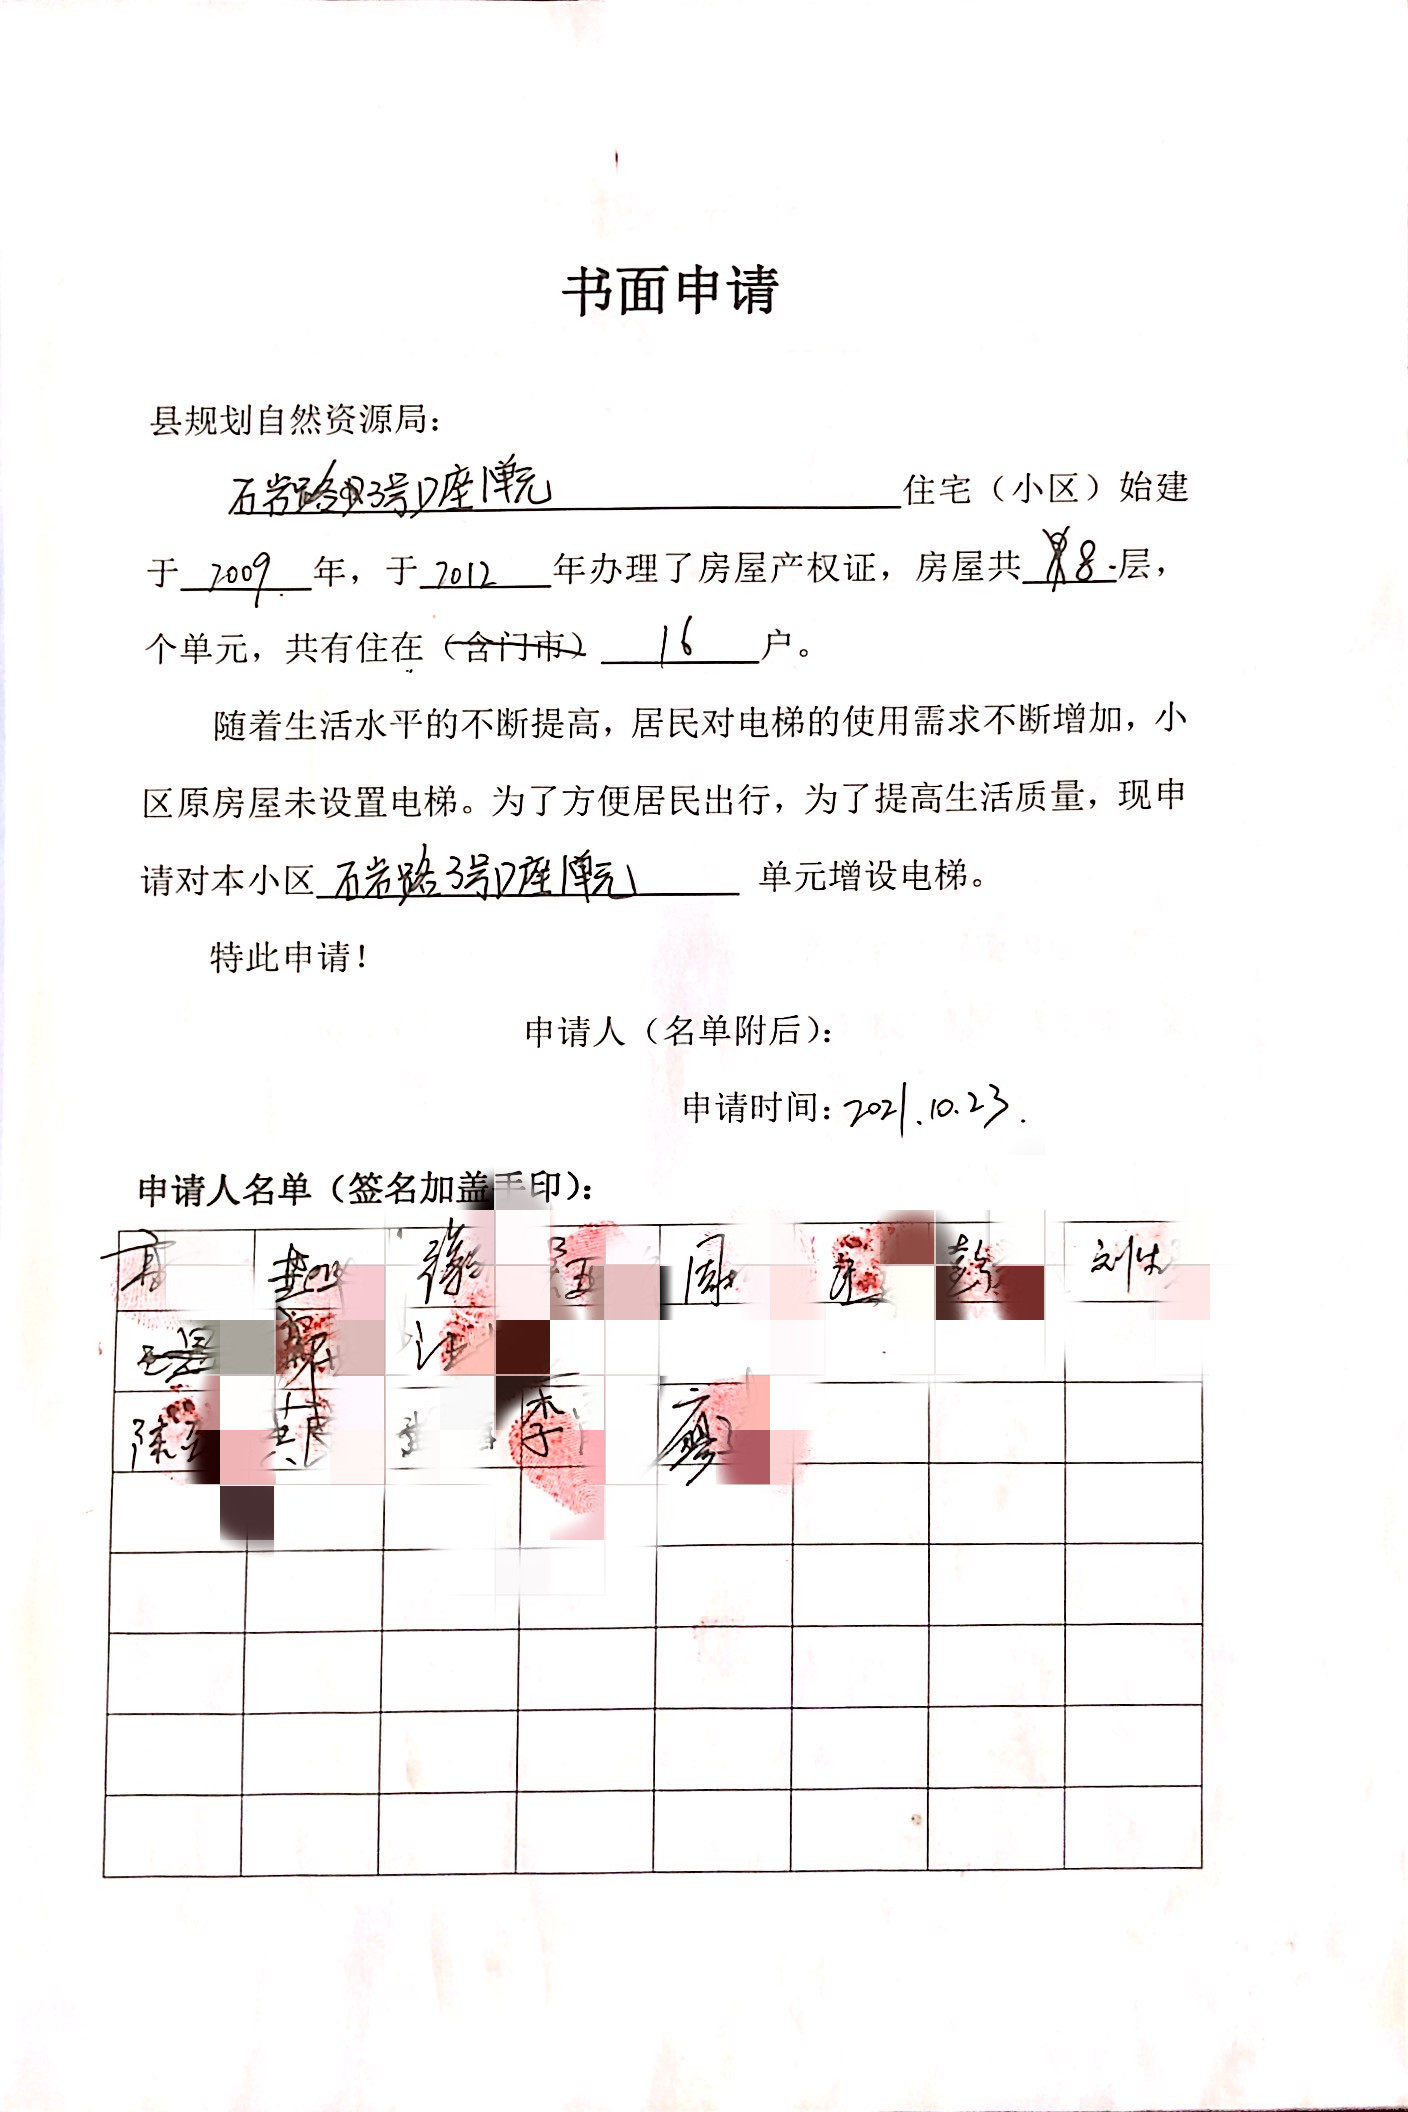 书面申请
县规划自然资源局：
石岩路3号D座1单元住宅（小区）始建
于2009年，于2012年办理了房屋产权证，房屋共8层，
个单元，共有住在（含门市）16户。
随着生活水平的不断提高，居民对电梯的使用需求不断增加，小
区原房屋未设置电梯。为了方便居民出行，为了提高生活质量，现申
请对本小区石岩路3号D座1单元 单元增设电梯。
特此申请！
申请人（名单附后）：
申请时间：2021.10.23.
申请人名单（签名加盖手印）：
周 彭 刘
汪
陈 李 廖